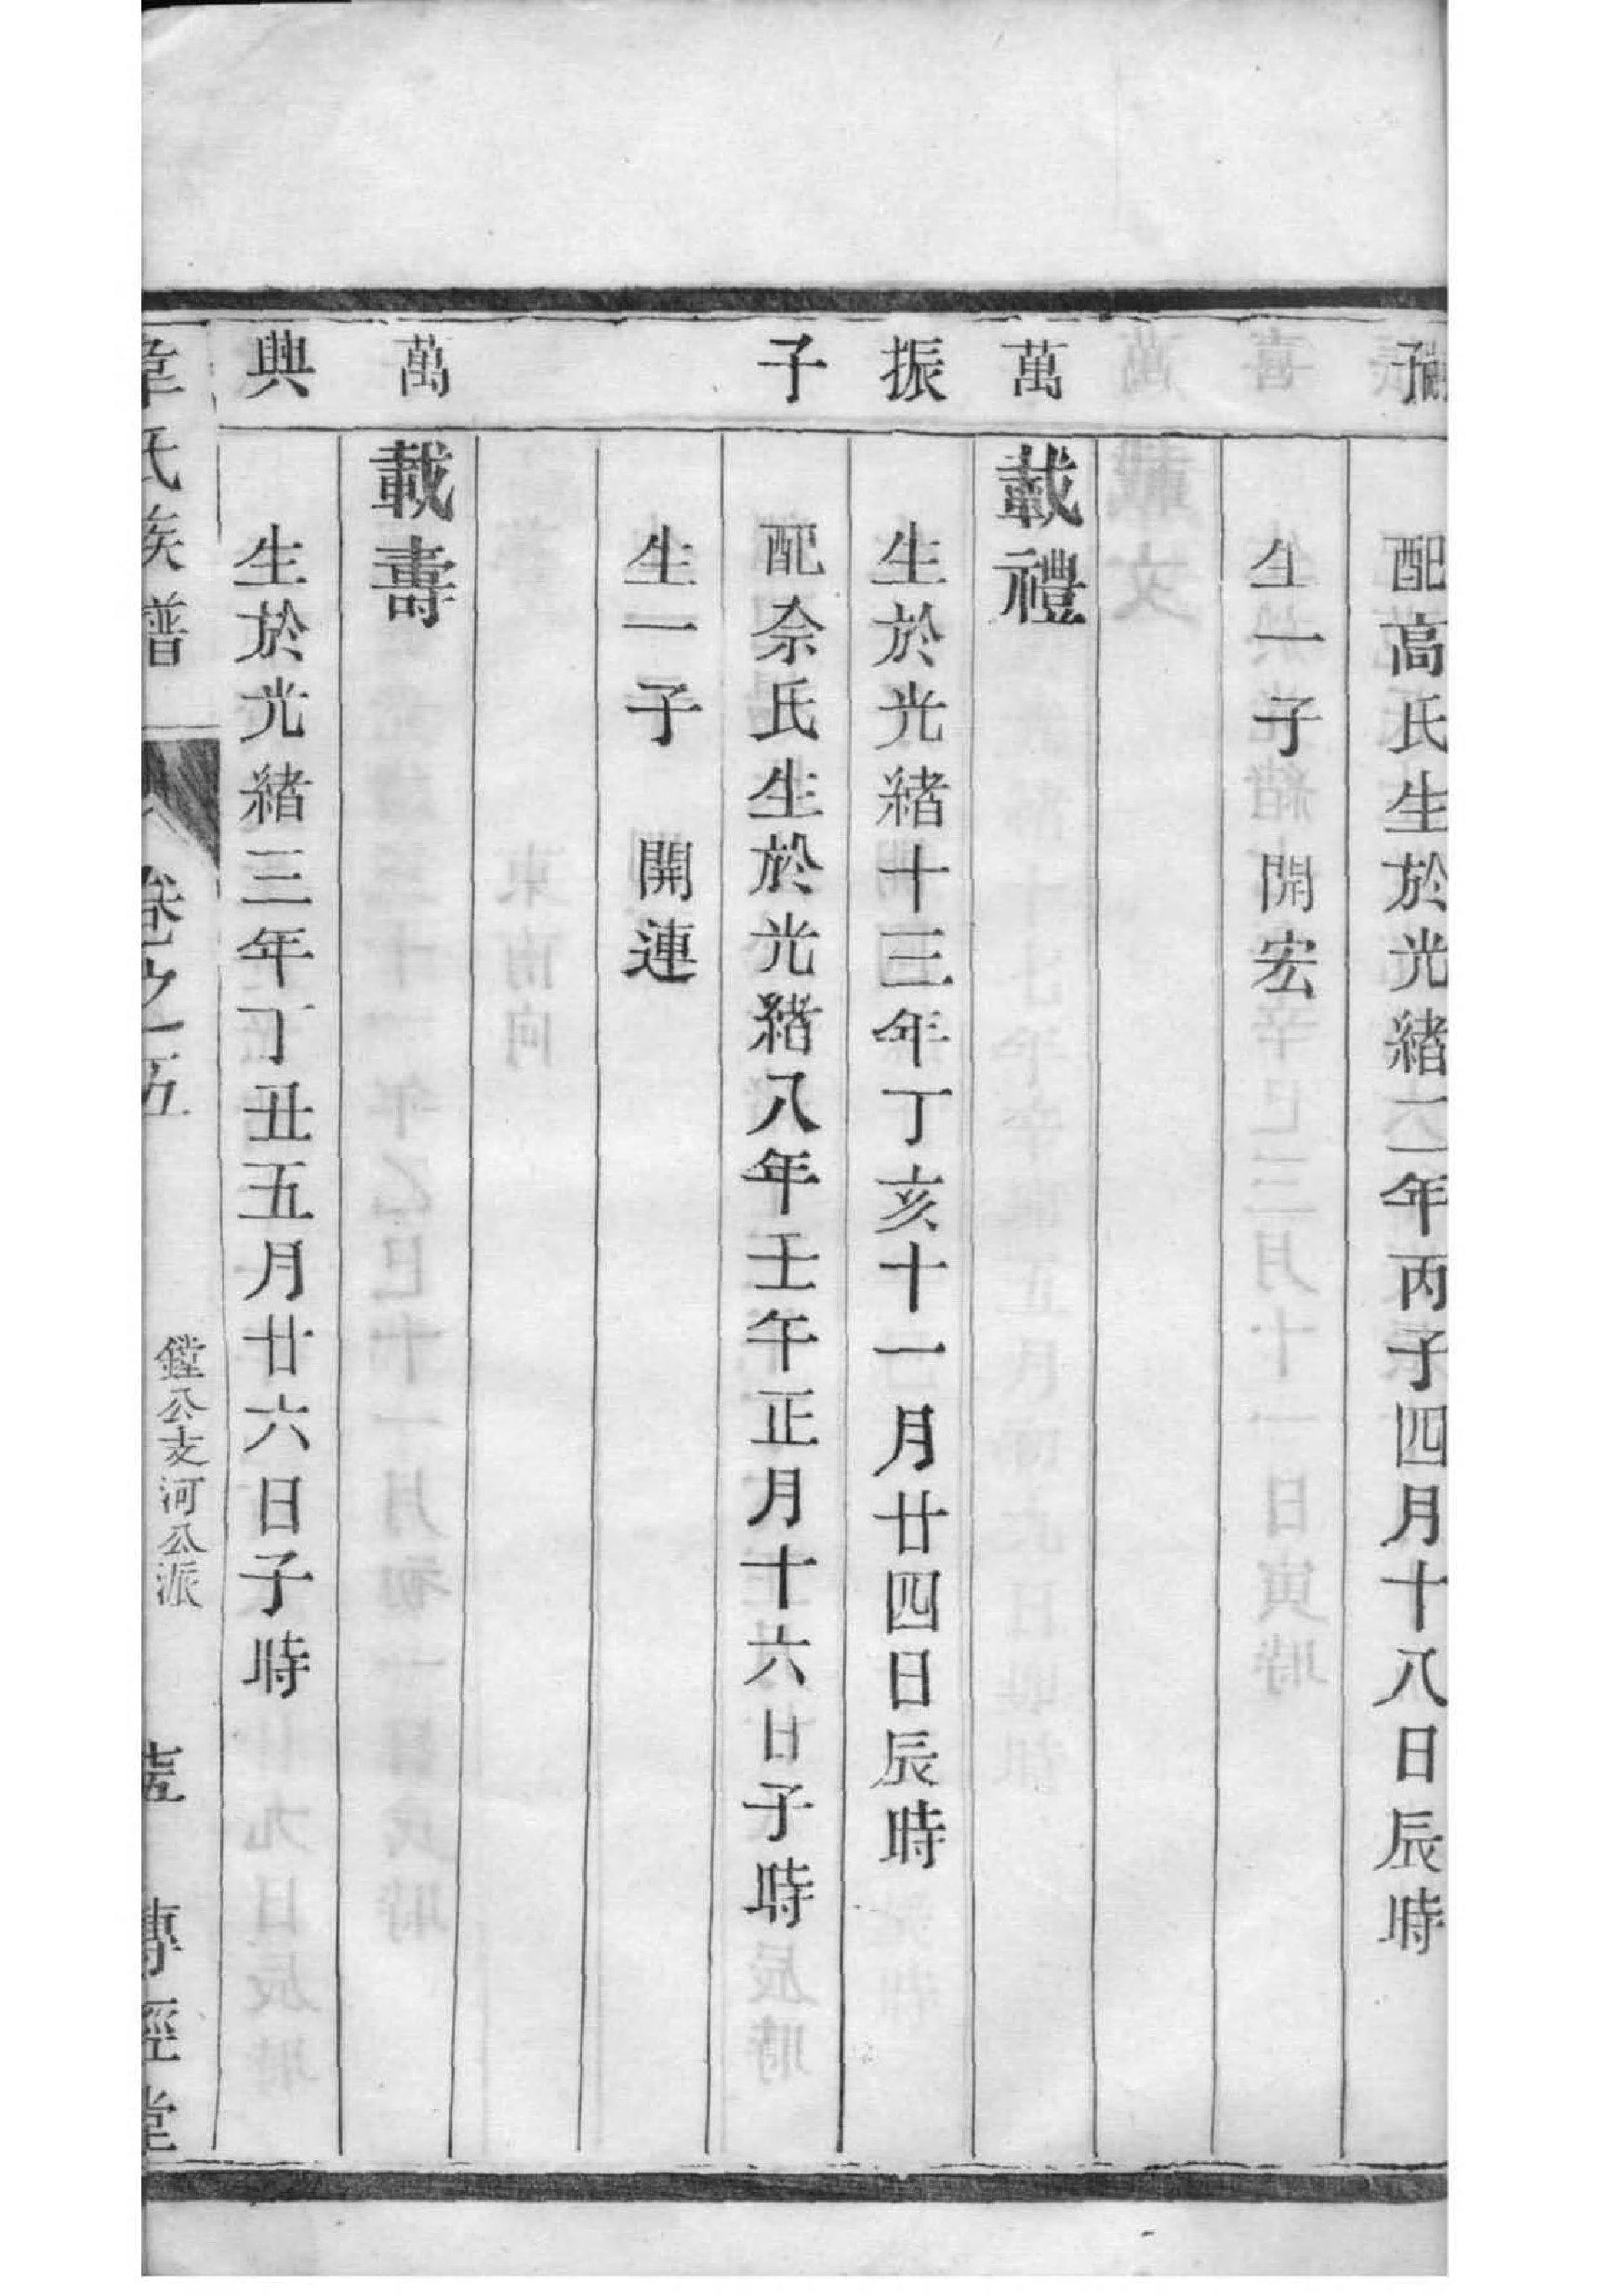 子
配高氏生於光緒二年丙子四月十八日辰時
生一子　開宏
萬
載禮
振
生於光緒十三年丁亥十一月廿四日辰時
子
配佘氏生於光緒八年壬午正月十六日子時
生一子　開連
萬
載壽
興
生於光緒三年丁丑五月廿六日子時
章氏族譜
卷之五
鏜公支河公派
傳經堂